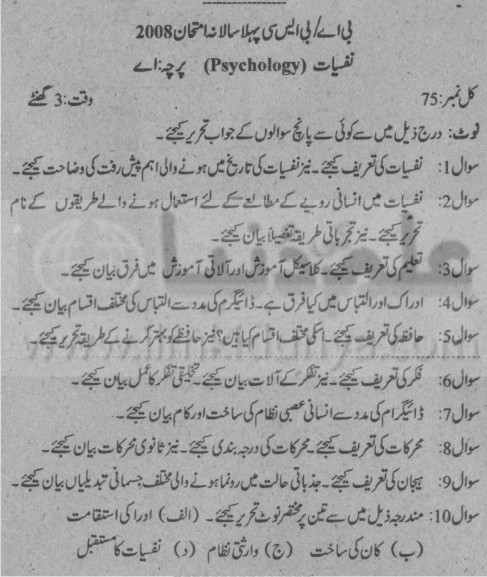 بی اے/بی ایس سی پہلا سالانہ امتحان 2008
نفسیات (Psychology) پرچہ: اے
کل نمبر: 75 وقت: 3 گھنٹے
نوٹ: درج ذیل میں سے کوئی سے پانچ سوالوں کے جواب تحریر کیجئے۔
سوال1: نفسیات کی تعریف کیجئے۔ نیز نفسیات کی تاریخ میں ہونے والی اہم پیش رفت کی وضاحت کیجئے۔
سوال2: نفسیات میں انسانی رویے کے مطالعے کے لئے استعمال ہونے والے طریقوں کے نام
تحریر کیجئے۔ نیز تجرباتی طریقہ تفصیلاً بیان کیجئے۔
سوال3: تعلیم کی تعریف کیجئے۔ کلاسیکل آموزش اور آلاتی آموزش میں فرق بیان کیجئے۔
سوال4: ادراک اور التباس میں کیا فرق ہے۔ ڈائیگرم کی مدد سے التباس کی مختلف اقسام بیان کیجئے۔
سوال5: حافظہ کی تعریف کیجئے۔ اسکی مختلف اقسام کیا ہیں؟ نیز حافظے کو بہتر کرنے کے طریقے تحریر کیجئے۔
سوال6: فکر کی تعریف کیجئے۔ نیز تفکر کے آلات بیان کیجئے۔ تخلیقی تفکر کا عمل بیان کیجئے۔
سوال7: ڈائیگرام کی مدد سے انسانی عصبی نظام کی ساخت اور کام بیان کیجئے۔
سوال8: محرکات کی تعریف کیجئے۔ محرکات کی درجہ بندی کیجئے۔ نیز ثانوی محرکات بیان کیجئے۔
سوال9: ہیجان کی تعریف کیجئے۔ جذباتی حالت میں رونما ہونے والی مختلف جسمانی تبدیلیاں بیان کیجئے۔
سوال10: مندرجہ ذیل میں سے تین پر مختصر نوٹ تحریر کیجئے۔ (الف) ادرا کی استقامت
(ب) کان کی ساخت (ج) وارثتی نظام (د) نفسیات کا مستقبل